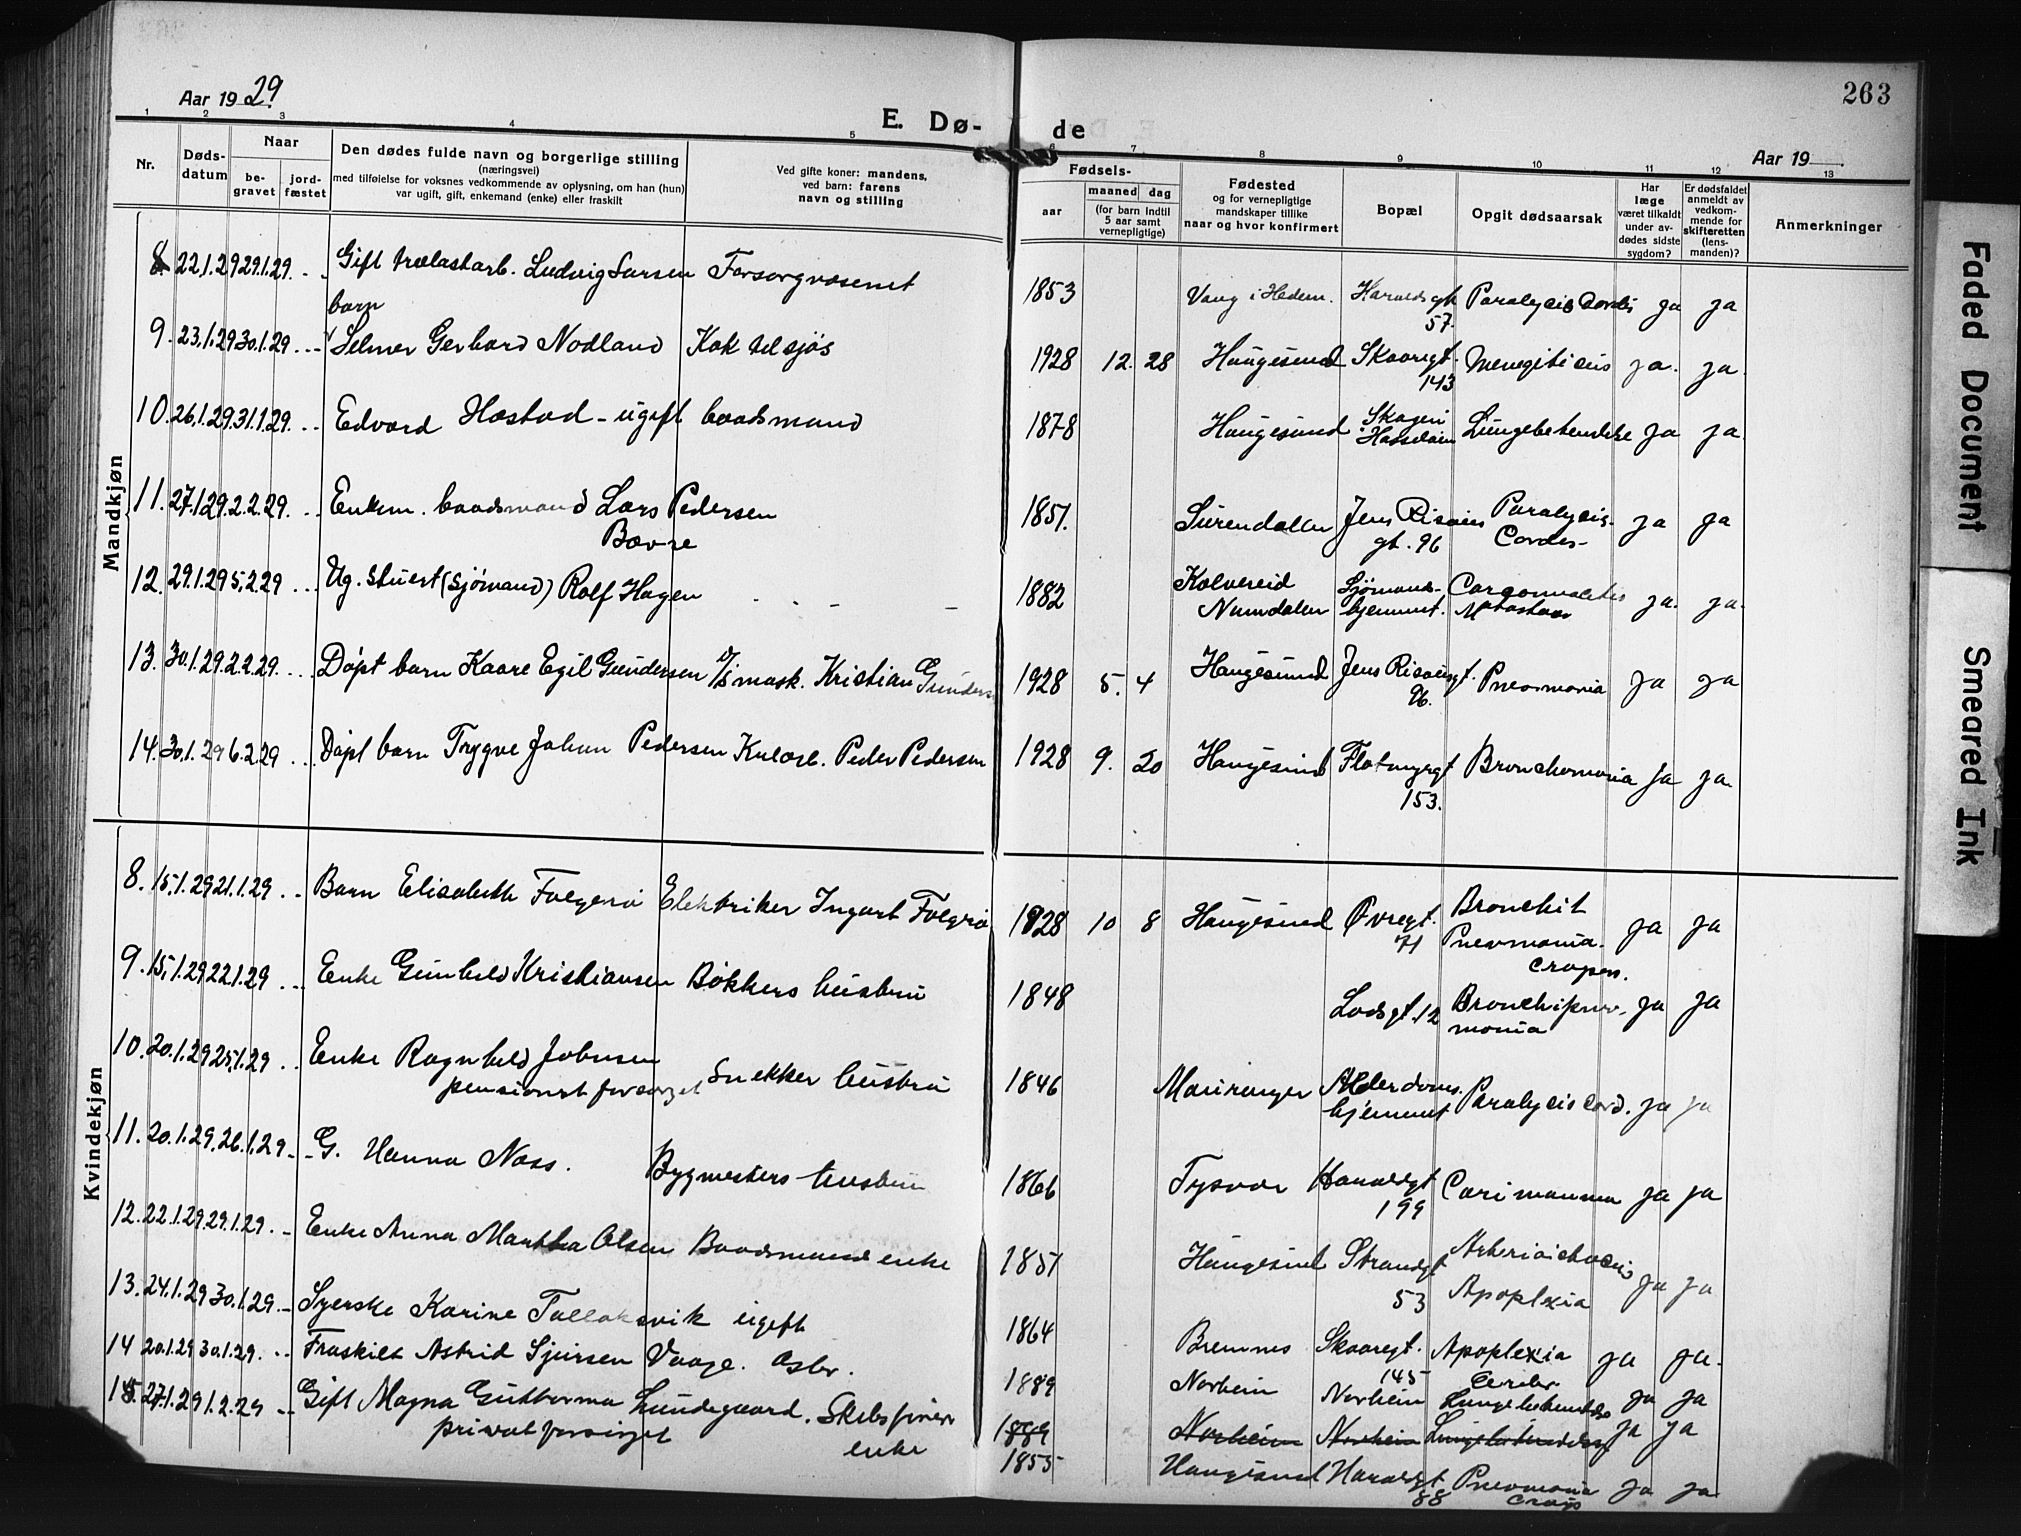 263
Aar 19 29
E. Dø-de
Aar 19
1 2 3 4 5 6 7 8 9 10 11 12 13
Nr.
Døds-datum
Naar
be-gravet
jord-fæstet
Den dødes fulde navn og borgerlige stilling
(næringsvei)
med tilføielse for voksnes vedkommende av oplysning, om han (hun)
var ugift, gift, enkemand (enke) eller fraskilt
Ved gifte koner: mandens,
ved barn: farens
navn og stilling
Fødsels-
aar
maaned dag
(for barn indtil
5 aar samt
vernepligtige)
Fødested
og for vernepligtige
mandskaper tillike
naar og hvor konfirmert
Bopæl
Opgit dødsaarsak
Har
læge
været tilkaldt
under av-
dødes sidste
sygdom?
Er dødsfaldet
anmeldt av
vedkom-
mende for
skifteretten
(lens-
manden)?
Anmerkninger
Mandkjøn
8 22.1.29 29.1.29. Gift trælastarb. Ludvig Larsen Forsorgvæsenet 1853 Vang i Hedem. Haraldsgt 57. Paralysis Cordis ja ja
barn
9. 23.1.29 30.1.29 Selmer Gerhard Nodland Kok til sjøs 1928 12. 28 Haugesund Skaaregt. 143 ja. ja.
10. 26.1.29. 31.1.29. Edvard Hastad - ugift baadsmand 1878 Haugesund Skagen i Hasseløen Lungebetendelse ja ja.
11. 27.1.29. 2.2.29. Enkem. baadsmand Lars Pedersen
Bævre 1851. Surendalen Jens Risøens gt. 96 Paralysis Cordis- ja ja
12. 29.1.29 5.2.29 Ug. stuert (sjømand) Rolf Hagen 1882 Kolvereid Numdalen Sjømands-hjemmet. ja. ja.
13. 30.1.29. 2.2.29. Døpt barn Kaare Egil Gundersen D/S mask. Kristian Gunders 1928 5. 4 Haugesund Jens Risøensgt. 96. Pneomonia ja ja
14. 30.1.29 6.2.29 Døpt barn Trygve Johan Pedersen Kularb. Peder Pedersen 1928 9. 20 Haugesund Flotmyrgt 153. Bronchomonia ja ja.
Kvindekjøn
8. 15.1.29 21.1.29 Barn Elisabeth Folgerø Elektriker Ingart Folgrø 1928 10 8 Haugesund Øvregt. 71 Bronchit Pneomonia. ja ja
9. 15.1.29 22.1.29 Enke Gunhild Kristiansen Bøkkers hustru 1848 Lodsgt. 12 Bronchipnev-monia ja ja
10. 20.1.29 25.1.29 Enke Ragnhild Johnsen
pensionist forsørget Snekker hustru 1846 Alderdoms.hjemmet Paralysis cord. ja ja
11. 20.1.29. 26.1.29 G. Hanna Næss. Bygmesters hustru 1866 Tysvær Haraldgt 199 ja ja
12. 22.1.29. 29.1.29. Enke Anna Martha Olsen Baadsmands enke 1851 Haugesund Strandgt 53 Apoplexia ja ja
13. 24.1.29 30.1.29. Syerske Karine Tallaksvik ugift 1864 Bremnes Skaaregt. 145 Apoplexia ja ja.
14 20.1.29 30.1.29. Fraskilt Astrid Sjursen Vaage. 1889 Norheim Norheim Lungebetendelse ja ja
15. 27.1.29 1.2.29 Gift Magna Guttorma Lundegaard. Skibsfører
privat forsørget enke
1889 Norheim Norheim Lungebetendelse ja ja
1855 Haugesund Haraldgt 88 Pneomonia ja ja
Faded Document
Smeared Ink